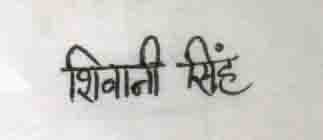 शिवानी सिंह